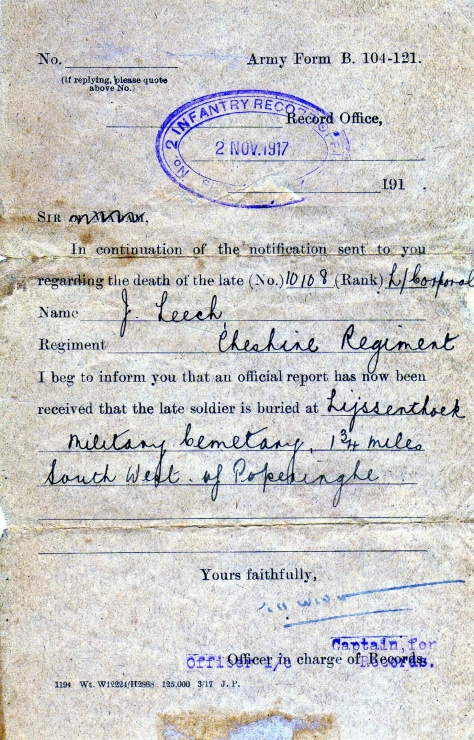 No. Army Form B. 104-121.
(If replying, please quote
above No.)
No. 2 INFANTRY RECORD
Record Office,
2 NOV. 1917
191 .
SIR or MADAM,
In continuation of the notification sent to you
regarding the death of the late (No.) 10108 (Rank) L/Corporal
Name J. Leech
Regiment Cheshire Regiment
I beg to inform you that an official report has now been
received that the late soldier is buried at Lijssenthoek
Military Cemetary, 1 3/4 miles
South West of Poperinghe
Yours faithfully,
Captain, for
Officer i/c Records.
Officer in charge of Records.
1194 Wt. W12224/H2888 125,000 3/17 J. P.